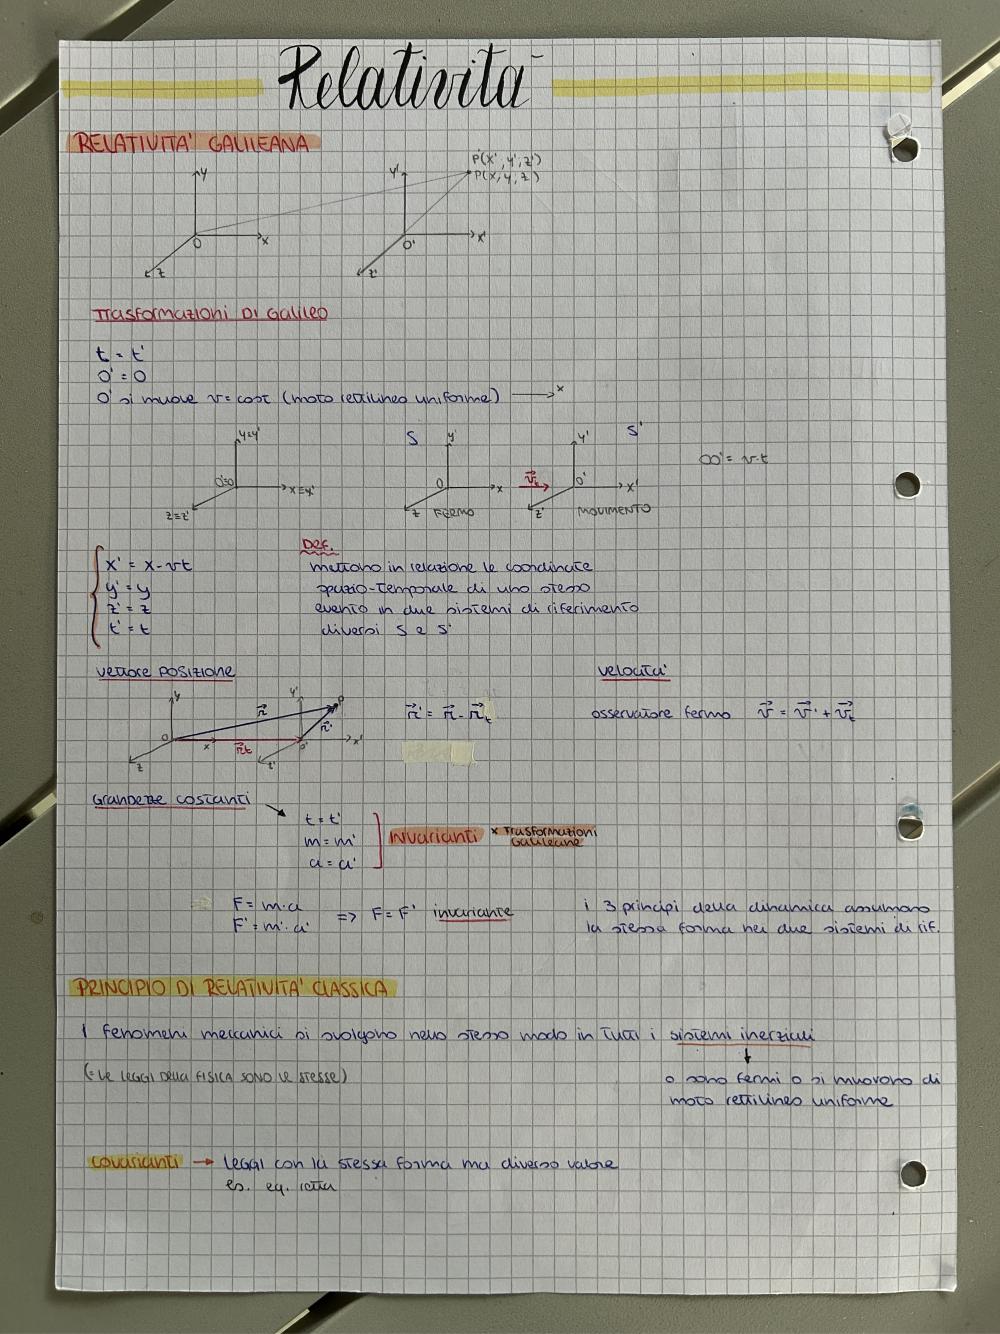 Relatività
RELATIVITA' GALILEANA
P'(x', y', z')
P(x, y, z)
y
y'
O
x
O'
x'
z
z'
Trasformazioni di Galileo
t = t'
O' = O
O' si muove v = cost (moto rettilineo uniforme) → x
y=y'
O'=O
x=x'
z=z'
S
y
O
x
z
FERMO
v⃗t
y'
S'
O'
x'
z'
MOVIMENTO
OO' = v·t
Def.
x' = x - vt
y' = y
z' = z
t' = t
mettono in relazione le coordinate
spazio-temporale di uno stesso
evento in due sistemi di riferimento
diversi S e S'
vettore POSIZIONE
y
y'
P
r⃗
r⃗'
O
x
r⃗t
O'
x'
z
z'
r⃗' = r⃗ - r⃗t
velocita'
osservatore fermo v⃗ = v⃗' + v⃗t
Grandezze costanti
t = t'
m = m'
a = a'
invarianti x Trasformazioni
Galileiane
F = m·a
F' = m'·a'
=> F = F' invariante
i 3 principi della dinamica assumono
la stessa forma nei due sistemi di rif.
PRINCIPIO DI RELATIVITA' CLASSICA
I fenomeni meccanici si svolgono nello stesso modo in tutti i sistemi inerziali
(= LE LEGGI DELLA FISICA SONO LE STESSE)
o sono fermi o si muovono di
moto rettilineo uniforme
covarianti → leggi con la stessa forma ma diverso valore
es. eq. retta